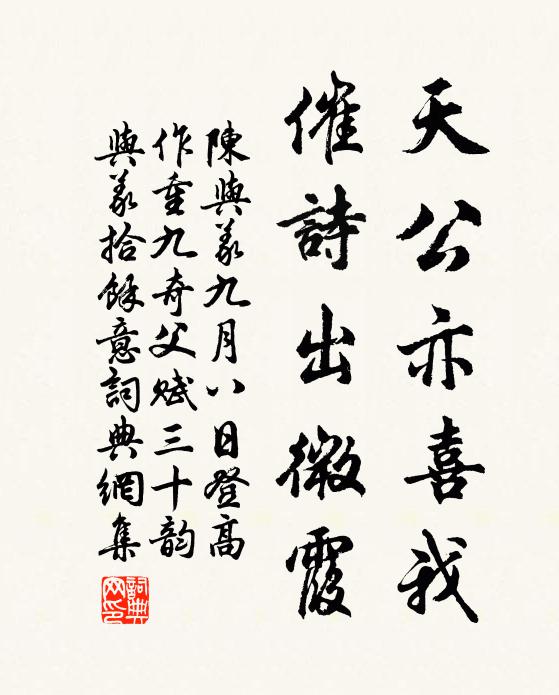 天公亦喜我
催詩出微霞
陳與義九月八日登高
作重九奇父賦三十韵
與義拾餘意詞典網集
詞典网印